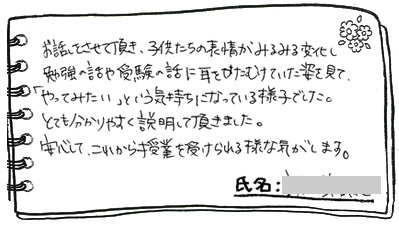 お話しをさせて頂き、子供たちの表情がみるみる変化し
勉強の話や受験の話に耳をかたむけていた姿を見て、
「やってみたい」という気持ちになっている様子でした。
とても分かりやすく説明して頂きました。
安心して、これから授業を受けられる様な気がします。
氏名: